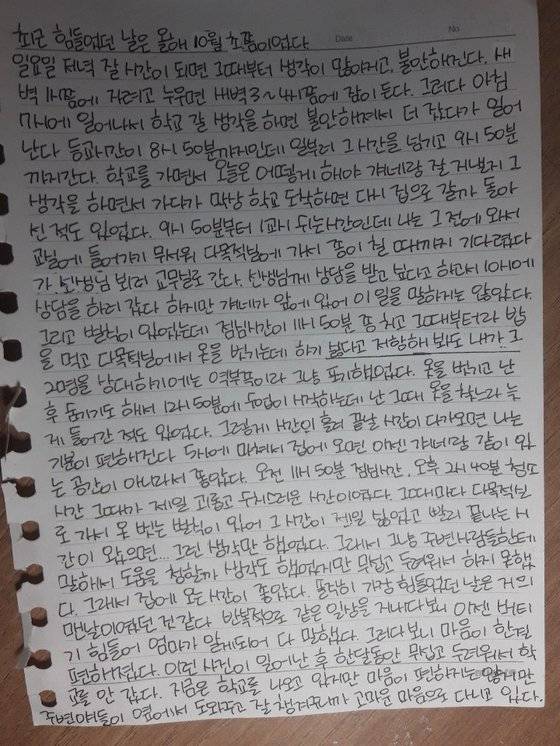 Date No
최근 힘들었던 날은 올해 10월 초쯤이었다
일요일 저녁 잘 시간이 되면 그때부터 생각이 많아지고, 불안해진다. 새
벽 1시쯤에 자려고 누우면 새벽 3~4시쯤에 잠이 든다. 그러다 아침
7시에 일어나서 학교 갈 생각을 하면 불안해해서 더 잤다가 일어
난다 등교시간이 8시 50분까지인데 일부러 그 시간을 넘기고 9시 50분
까지간다. 학교를 가면서 오늘은 어떻게 하야 걔네랑 잘 지낼지 그
생각을 하면서 가다가 막상 학교 도착하면 다시 집으로 갈까 돌아
선 적도 있었다. 9시 50분부터 1교시 쉬는시간인데 나는 그 전에 와서
교실에 들어가기 무서워 다목적실에 가서 종이 칠 때까지 기다렸다
가 선생님 보러 교무실로 간다. 선생님께 상담을 받고 싶다고 하고서 10시에
상담을 하러 갔다 하지만 걔네가 앞에 있어 이 일을 말하지는 않았다.
그리고 벌칙이 있었는데 점심시간이 11시 50분 쯤 치고 그때부터라 밥
을 먹고 다목적실에서 옷을 벗기는데 하기 싫다고 저항해 봐도 내가 그
2명을 상대하기에는 역부족이라 그냥 포기했었다. 옷을 벗기고 난
후 숨기기도 해서 12시 50분에 수업이 시작하는데 난 그때 옷을 찾느라 늦
게 들어간 적도 있었다. 그렇게 시간이 흘러 끝날 시간이 다가오면 나는
기분이 편해진다 5시에 마쳐서 집에 오면 이젠 걔네랑 같이 있
는 공간이 아니라서 좋았다. 오전 11시 50분 점심시간, 오후 2시 40분 쉼표
시간 그때가 제일 괴롭고 수치스러운 시간이었다. 그때마다 다목적실
로 가서 옷 벗는 벌칙이 있어 그 시간이 제일 싫었고 빨리 끝나는 시
간이 왔으면... 그런 생각만 했었다. 그래서 그냥 주변사람들한테
말해서 도움을 청할까 생각도 했었지만 무섭고 두려워서 하지 못했
다. 그래서 집에 오는 시간이 좋았다. 솔직히 가장 힘들었던 날은 거의
맨날이었던 것 같다. 반복적으로 같은 일상을 지나다보니 이젠 버티
기 힘들어 엄마가 알게되어 다 말했다. 그러다 보니 마음이 한결
편해졌다. 이런 사건이 일어난 후 한달동안 무섭고 두려워서 학
교를 안 갔다. 지금은 학교를 나오고 있지만 마음이 편하지는 않지만
주변애들이 옆에서 도와주고 잘 챙겨주니까 고마운 마음으로 다니고 있다.